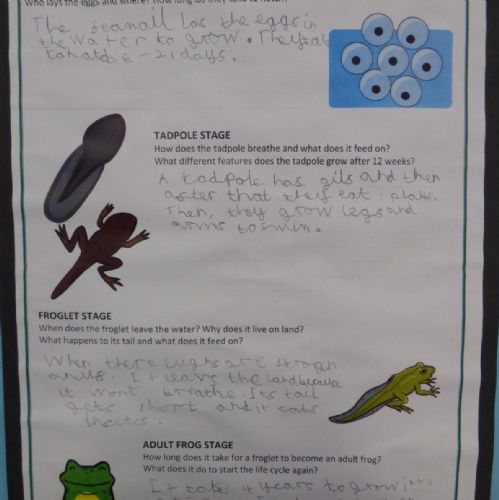 Who lays the eggs and where? How long do they take to hatch?
The feanall las the eggs in
the water to grow. They
to 6 - 21 days.
TADPOLE STAGE
How does the tadpole breathe and what does it feed on?
What different features does the tadpole grow after 12 weeks?
A tadpole has gils and then
after that they eat plats.
Then, they grow legs and
arms to swim.
FROGLET STAGE
When does the froglet leave the water? Why does it live on land?
What happens to its tail and what does it feed on?
When there lughs are strogh
It leavs the land because
it wont breathe. Its tail
gets short and it eats
insects.
ADULT FROG STAGE
How long does it take for a froglet to become an adult frog?
What does it do to start the life cycle again?
It takes 4 years to grow into